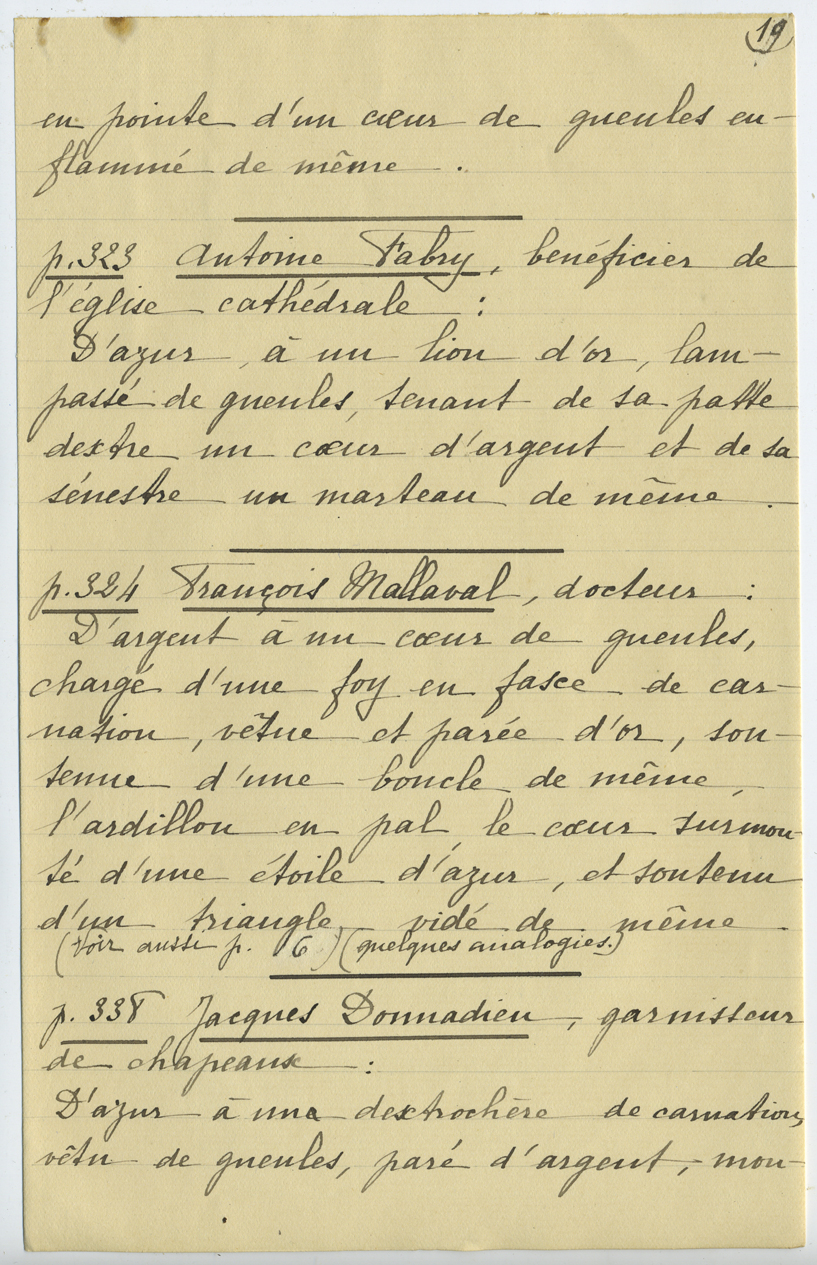 19
en pointe d'un cœur de gueules en-
flammé de même .
p. 323 Antoine Fabry, benéficier de
l'église cathédrale :
D'azur, à un lion d'or, lam-
passé de gueules, tenant de sa patte
dextre un cœur d'argent et de sa
sénestre un marteau de même .
p. 324 François Mallaval, docteur :
D'argent à un cœur de gueules,
chargé d'une foy en fasce de car-
nation, vêtue et parée d'or, sou-
tenue d'une boucle de même,
l'ardillon en pal, le cœur surmon-
té d'une étoile d'azur, et soutenu
d'un triangle vidé de même .
(Voir aussi p. 6) (quelques analogies.)
p. 338 Jacques Donnadieu, garnisseur
de chapeaux :
D'azur à une dextrochère de carnation,
vêtu de gueules, paré d'argent, mou-